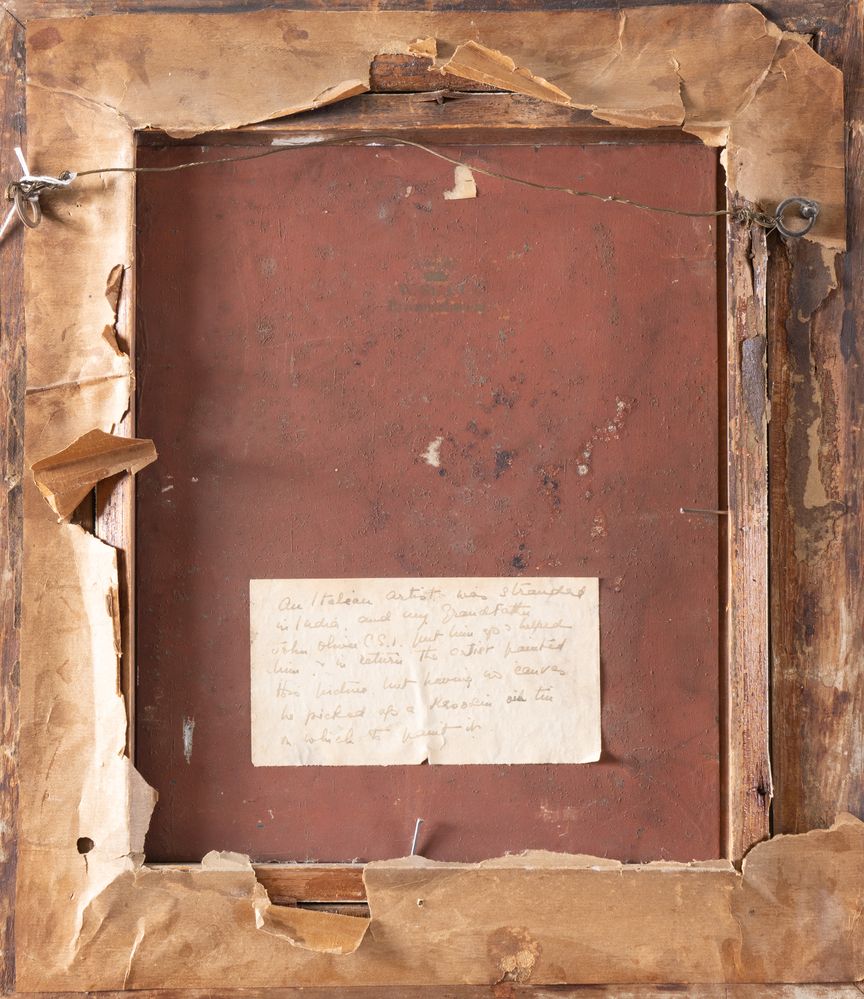 An Italian artist was stranded
in India, and my Grandfather
John Oliver C.S.I. put him up & helped
him & in return the artist painted
this picture not having no canvas
he picked up a Kerosin oil tin
on which to paint it.